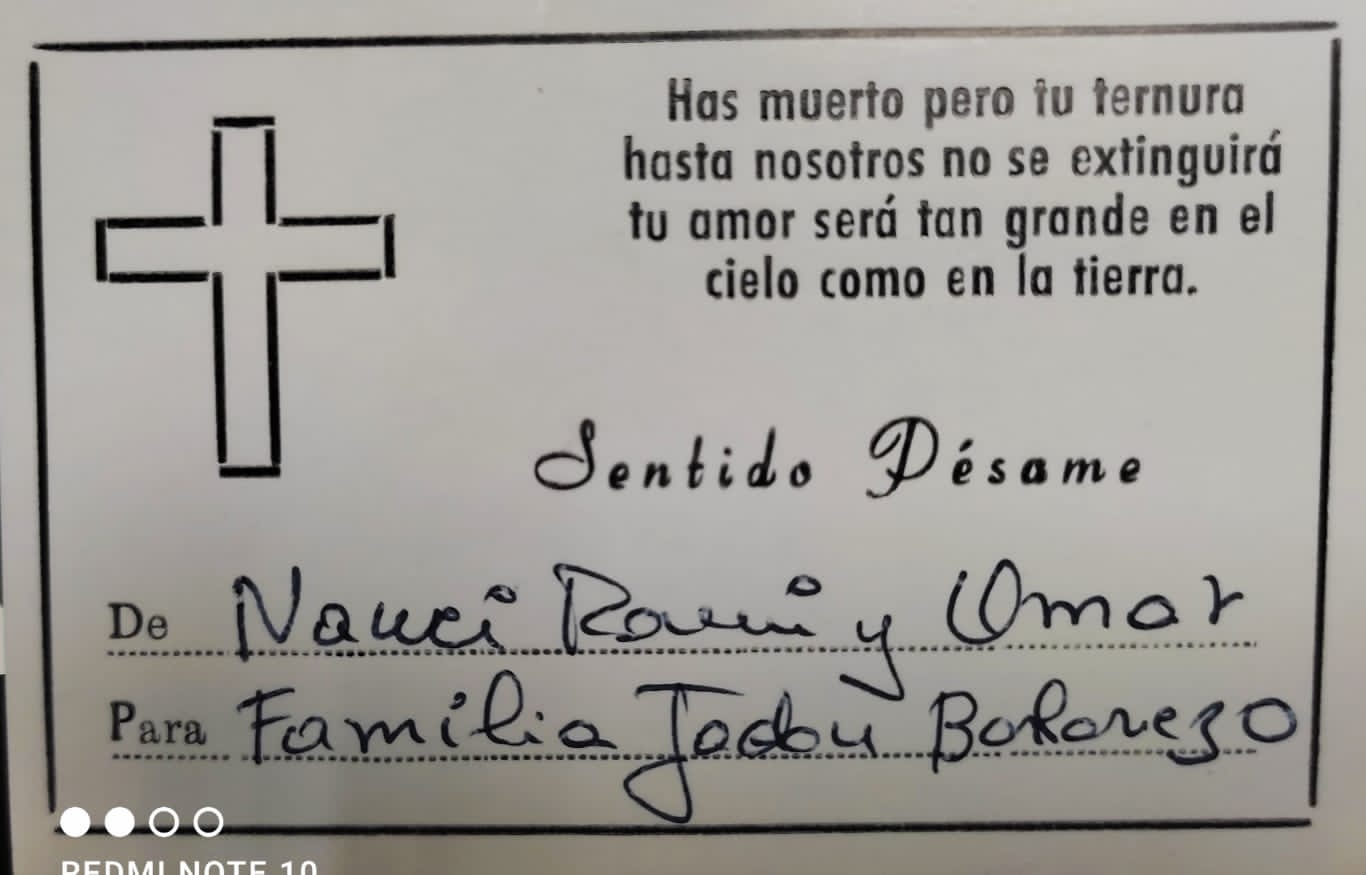 Has muerto pero tu ternura
hasta nosotros no se extinguirá
tu amor será tan grande en el
cielo como en la tierra.
Sentido Pésame
De Nanci y Omar
Para Familia Jadou
REDMI NOTE 10